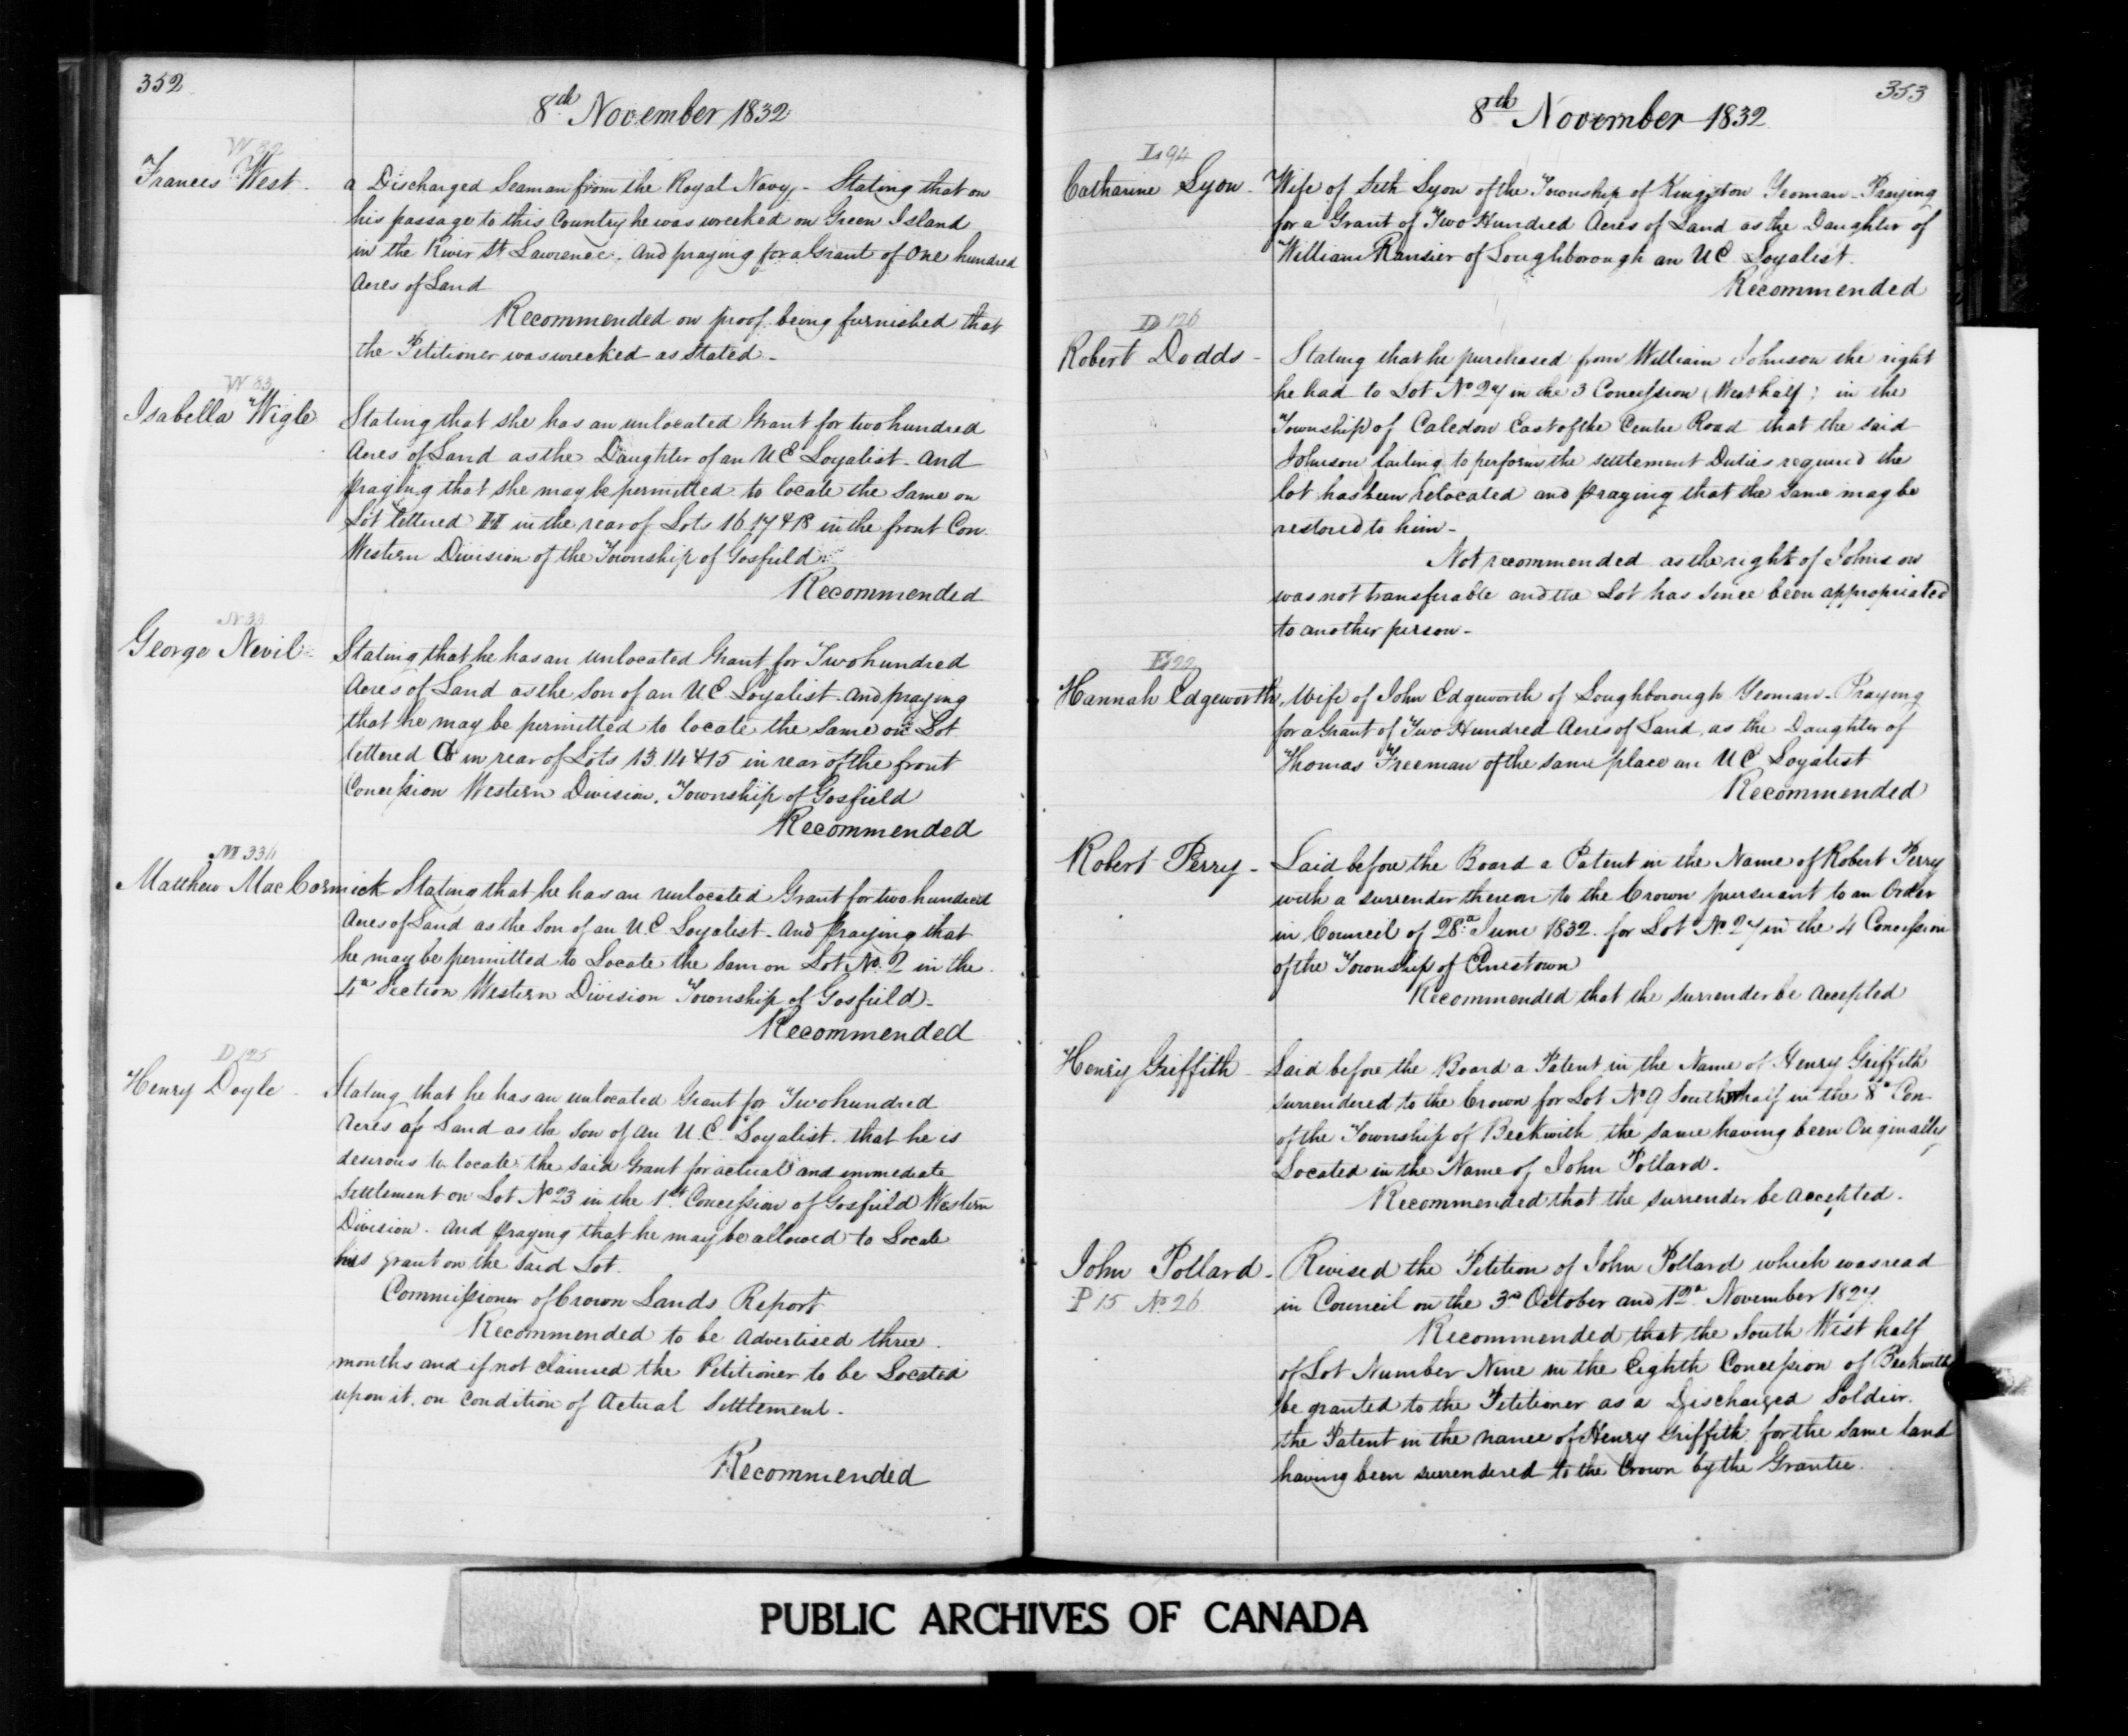 352
8th November 1832
W 82
Francis West - a Discharged Seaman from the Royal Navy - Stating that on
his passage to this Country he was wrecked on Green Island
in the River St Lawrence. And praying for a Grant of One hundred
Acres of Land
Recommended on proof being furnished that
the Petitioner was wrecked as stated -
W 83
Isabella Wigle Stating that she has an unlocated Grant for two hundred
Acres of Land as the Daughter of an U E Loyalist - and
praying that she may be permitted to locate the Same on
Lot lettered H in the rear of Lots 16 17 & 18 in the front Con.
Western Division of the Township of Gosfield
Recommended
N 33
George Nevil - Stating that he has an unlocated Grant for Two hundred
Acres of Land as the Son of an U E Loyalist - and praying
that he may be permitted to locate the Same on Lot
lettered G in rear of Lots 13. 14 & 15 in rear of the front
Concession Western Division, Township of Gosfield
Recommended
M 336
Matthew MacCormick Stating that he has an unlocated Grant for two hundred
Acres of Land as the Son of an U. E Loyalist - And praying that
he may be permitted to Locate the Sam on Lot No. 2 in the
4th Section Western Division Township of Gosfield -
Recommended
D 125
Henry Doyle - Stating that he has an unlocated Grant for Two hundred
Acres of Land as the Son of an U. E. Loyalist. that he is
desirous to locate the said Grant for actual and immediate
Settlement on Lot No 23 in the 1st Concession of Gosfield Western
Division - And praying that he may be allowed to Locate
his grant on the Said Lot.
Commissioner of Crown Lands Report
Recommended to be Advertised three
months and if not claimed the Petitioner to be Located
upon it, on Condition of Actual Settlement -
Recommended
353
8th November 1832
L 94
Catharine Lyon - Wife of Seth Lyon of the Township of Kingston Yeoman - Praying
for a Grant of Two Hundred Acres of Land as the Daughter of
William Ransier of Loughborough an U E Loyalist.
Recommended
D 126
Robert Dodds - Stating that he purchased from William Johnson the right
he had to Lot No 27 in the 3 Concession (West half) in the
Township of Caledon East of the Centre Road that the said
Johnson failing to perform the settlement Duties required the
lot has been relocated and praying that the Same may be
restored to him -
Not recommended as the right of Johnson
was not transferable and the Lot has since been appropriated
to another person -
E 22
Hannah Edgeworth, Wife of John Edgeworth of Loughborough Yeoman - Praying
for a Grant of Two Hundred Acres of Land, as the Daughter of
Thomas Freeman of the same place an U E Loyalist
Recommended
Robert Perry - Laid before the Board a Patent in the Name of Robert Perry
with a surrender thereon to the Crown pursuant to an Order
in Council of 28th June 1832 for Lot No. 27 in the 4 Concession
of the Township of Ernestown
Recommended that the surrender be Accepted
Henry Griffith - Laid before the Board a Patent in the Name of Henry Griffith
surrendered to the Crown for Lot No 9 South half in the 8th Con
of the Township of Beckwith, the same having been Originally
Located in the Name of John Pollard -
Recommended that the surrender be accepted -
John Pollard - Revised the Petition of John Pollard which was read
P 15 No 26 in Council on the 3rd October and 12th November 1827.
Recommended that the South West half
of Lot Number Nine in the Eighth Concession of Beckwith
be granted to the Petitioner as a Discharged Soldier.
the Patent in the name of Henry Griffith for the same land
having been surrendered to the Crown by the Grantee.
PUBLIC ARCHIVES OF CANADA